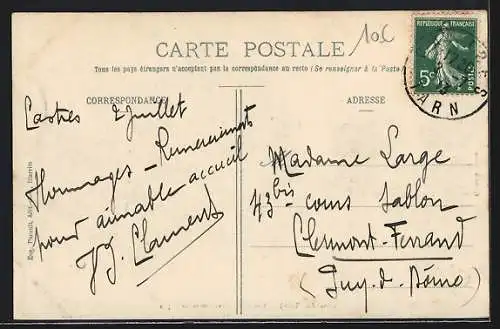 10c
CARTE POSTALE
Tous les pays étrangers n'acceptent pas la correspondance au recto (Se renseigner à la Poste)
CORRESPONDANCE
ADRESSE
REPUBLIQUE FRANÇAISE
5c
POSTES
TARN
Castres 2 Juillet
Hommages - Remerciements
pour aimable accueil
J. Clament
Madame Large
43 bis cours Sablon
Clermont-Ferrand
(Puy-de-Dôme)